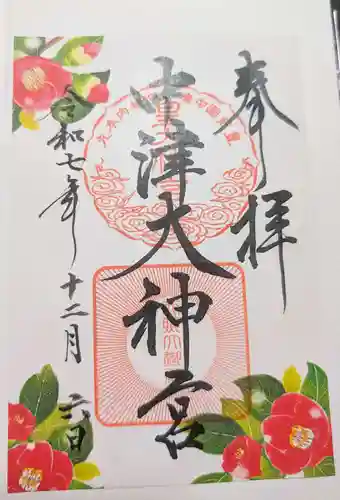 奉拝
中津大神宮
令和七年十二月六日